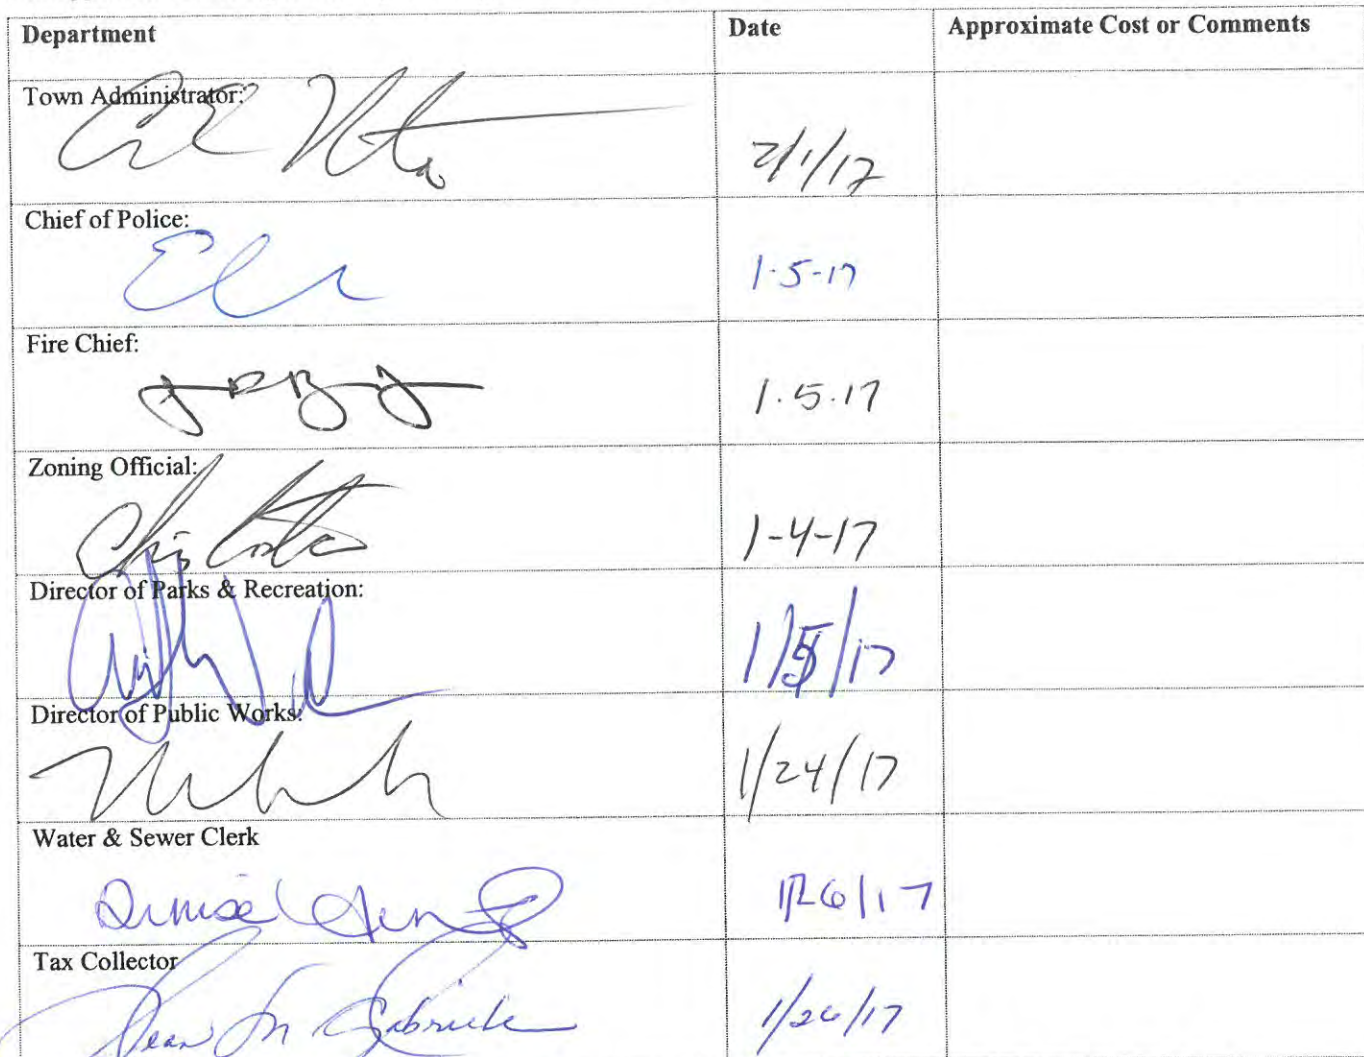 Department Date Approximate Cost or Comments
Town Administrator:
2/1/17
Chief of Police:
1-5-17
Fire Chief:
1.5.17
Zoning Official:
1-4-17
Director of Parks & Recreation:
1/5/17
Director of Public Works:
1/24/17
Water & Sewer Clerk
Denise
1/26/17
Tax Collector
1/26/17